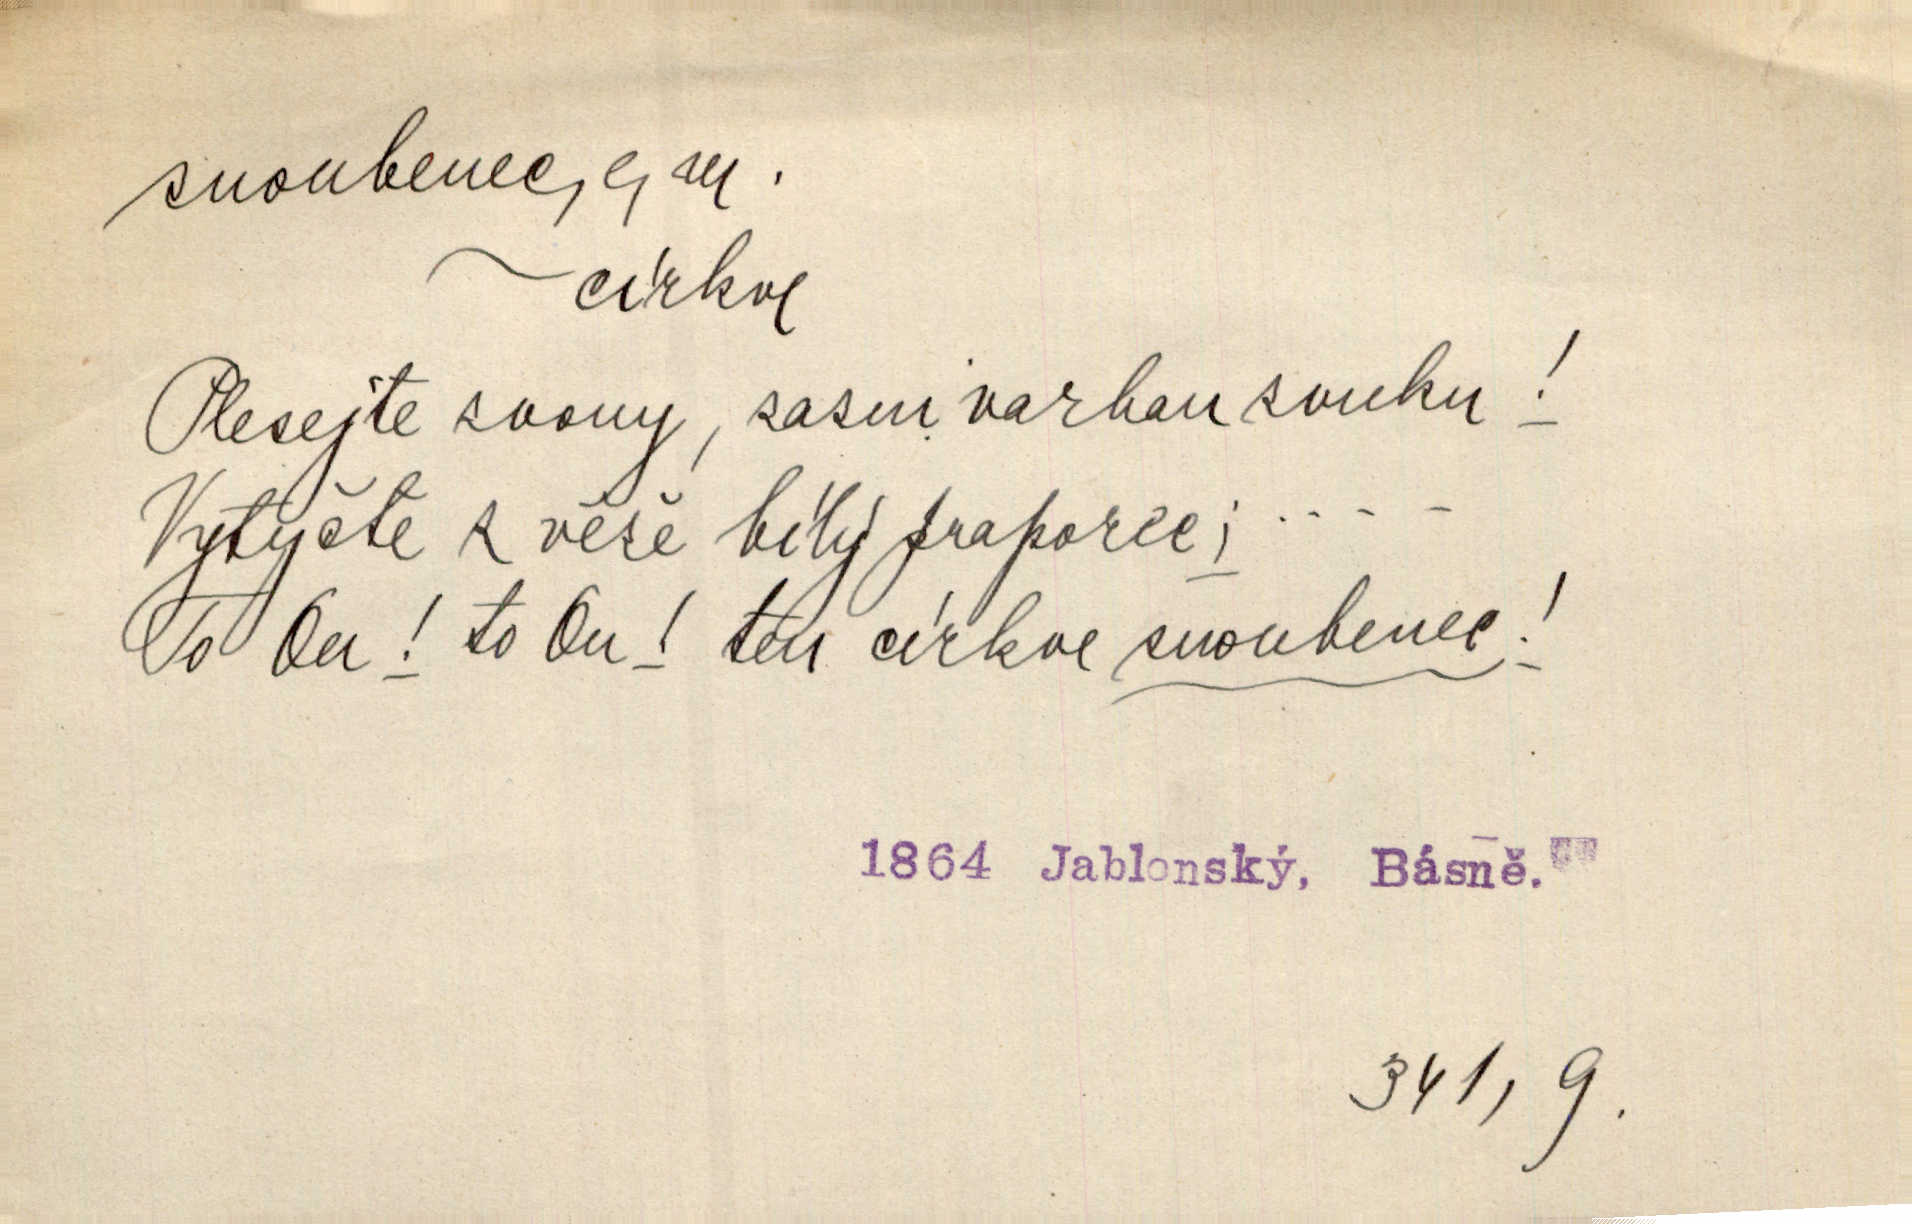 snoubenec, e, m.
~ církve
Plesejte zvony, zazni varhan zvuku!
Vytyčte z věže bílý praporec; ....
To On! to On! ten církve snoubenec!
1864 Jablonský, Básně.
341, 9.